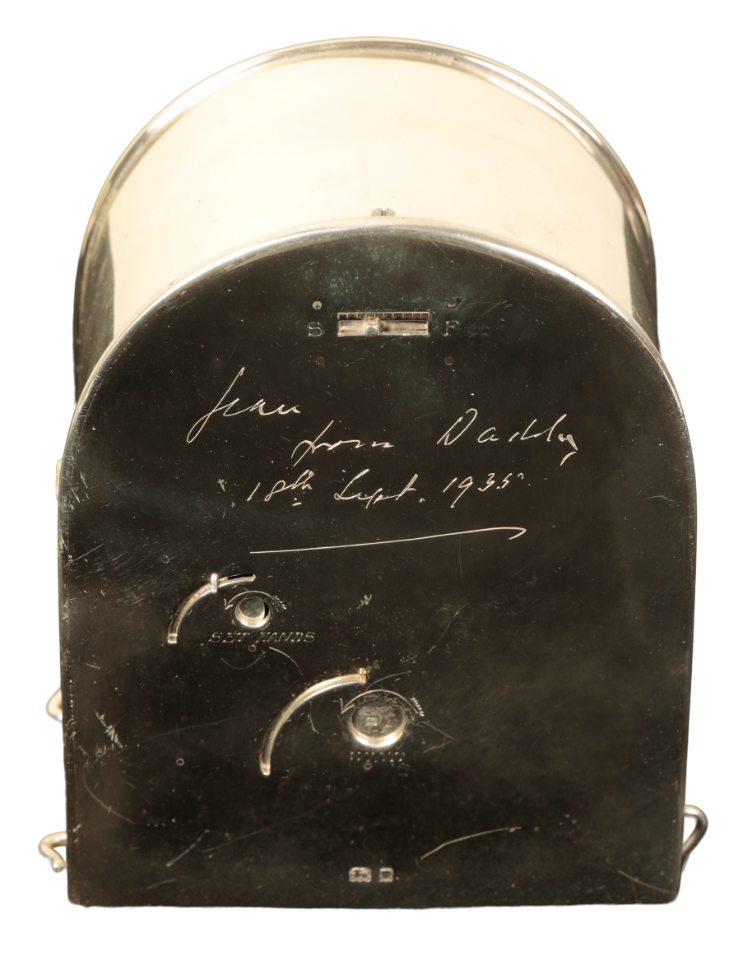 S F
Jean
from Daddy
18th Sept. 1935
SET HANDS